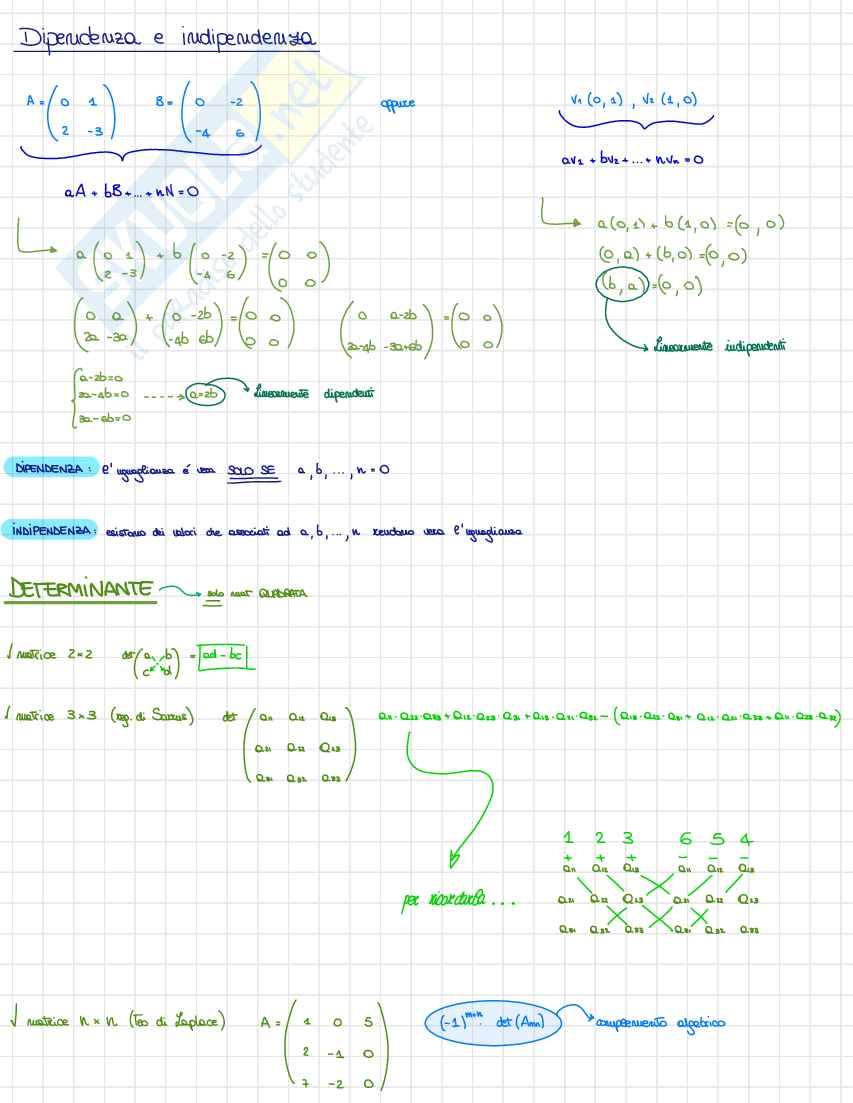 Dipendenza e indipendenza
A = ( 0 1 ; 2 -3 ) B = ( 0 -2 ; -4 6 ) oppure v₁ (0,1) , v₂ (1,0)
aA + bB + ... + nN = 0
av₁ + bv₂ + ... + nvₙ = 0
a ( 0 1 ; 2 -3 ) + b ( 0 -2 ; -4 6 ) = ( 0 0 ; 0 0 )
( 0 a ; 2a -3a ) + ( 0 -2b ; -4b 6b ) = ( 0 0 ; 0 0 ) ( 0 a-2b ; 2a-4b -3a+6b ) = ( 0 0 ; 0 0 )
a-2b=0
2a-4b=0 a=2b Linearmente dipendenti
3a-6b=0
a(0,1) + b(1,0) = (0,0)
(0,a) + (b,0) = (0,0)
(b,a) = (0,0)
Linearmente indipendenti
DIPENDENZA: l'uguaglianza é vera SOLO SE a, b, ..., n = 0
INDIPENDENZA: esistono dei valori che associati ad a, b, ..., n rendono vera l'uguaglianza
DETERMINANTE solo mat QUADRATA
√ matrice 2×2 det ( a b ; c d ) = ad - bc
√ matrice 3×3 (reg. di Sarrus) det ( a₁₁ a₁₂ a₁₃ ; a₂₁ a₂₂ a₂₃ ; a₃₁ a₃₂ a₃₃ ) a₁₁·a₂₂·a₃₃ + a₁₂·a₂₃·a₃₁ + a₁₃·a₂₁·a₃₂ - (a₁₃·a₂₂·a₃₁ + a₁₂·a₂₁·a₃₃ + a₁₁·a₂₃·a₃₂)
per ricordarla ...
1 2 3 6 5 4
+ + + - - -
a₁₁ a₁₂ a₁₃ a₁₁ a₁₂ a₁₃
a₂₁ a₂₂ a₂₃ a₂₁ a₂₂ a₂₃
a₃₁ a₃₂ a₃₃ a₃₁ a₃₂ a₃₃
√ matrice n×n (Teo di Laplace) A = ( 1 0 5 ; 2 -1 0 ; 7 -2 0 ) (-1)ᵐ⁺ⁿ · det (Aₘₙ) complemento algebrico
SKUOLA.net
il paradiso dello studente